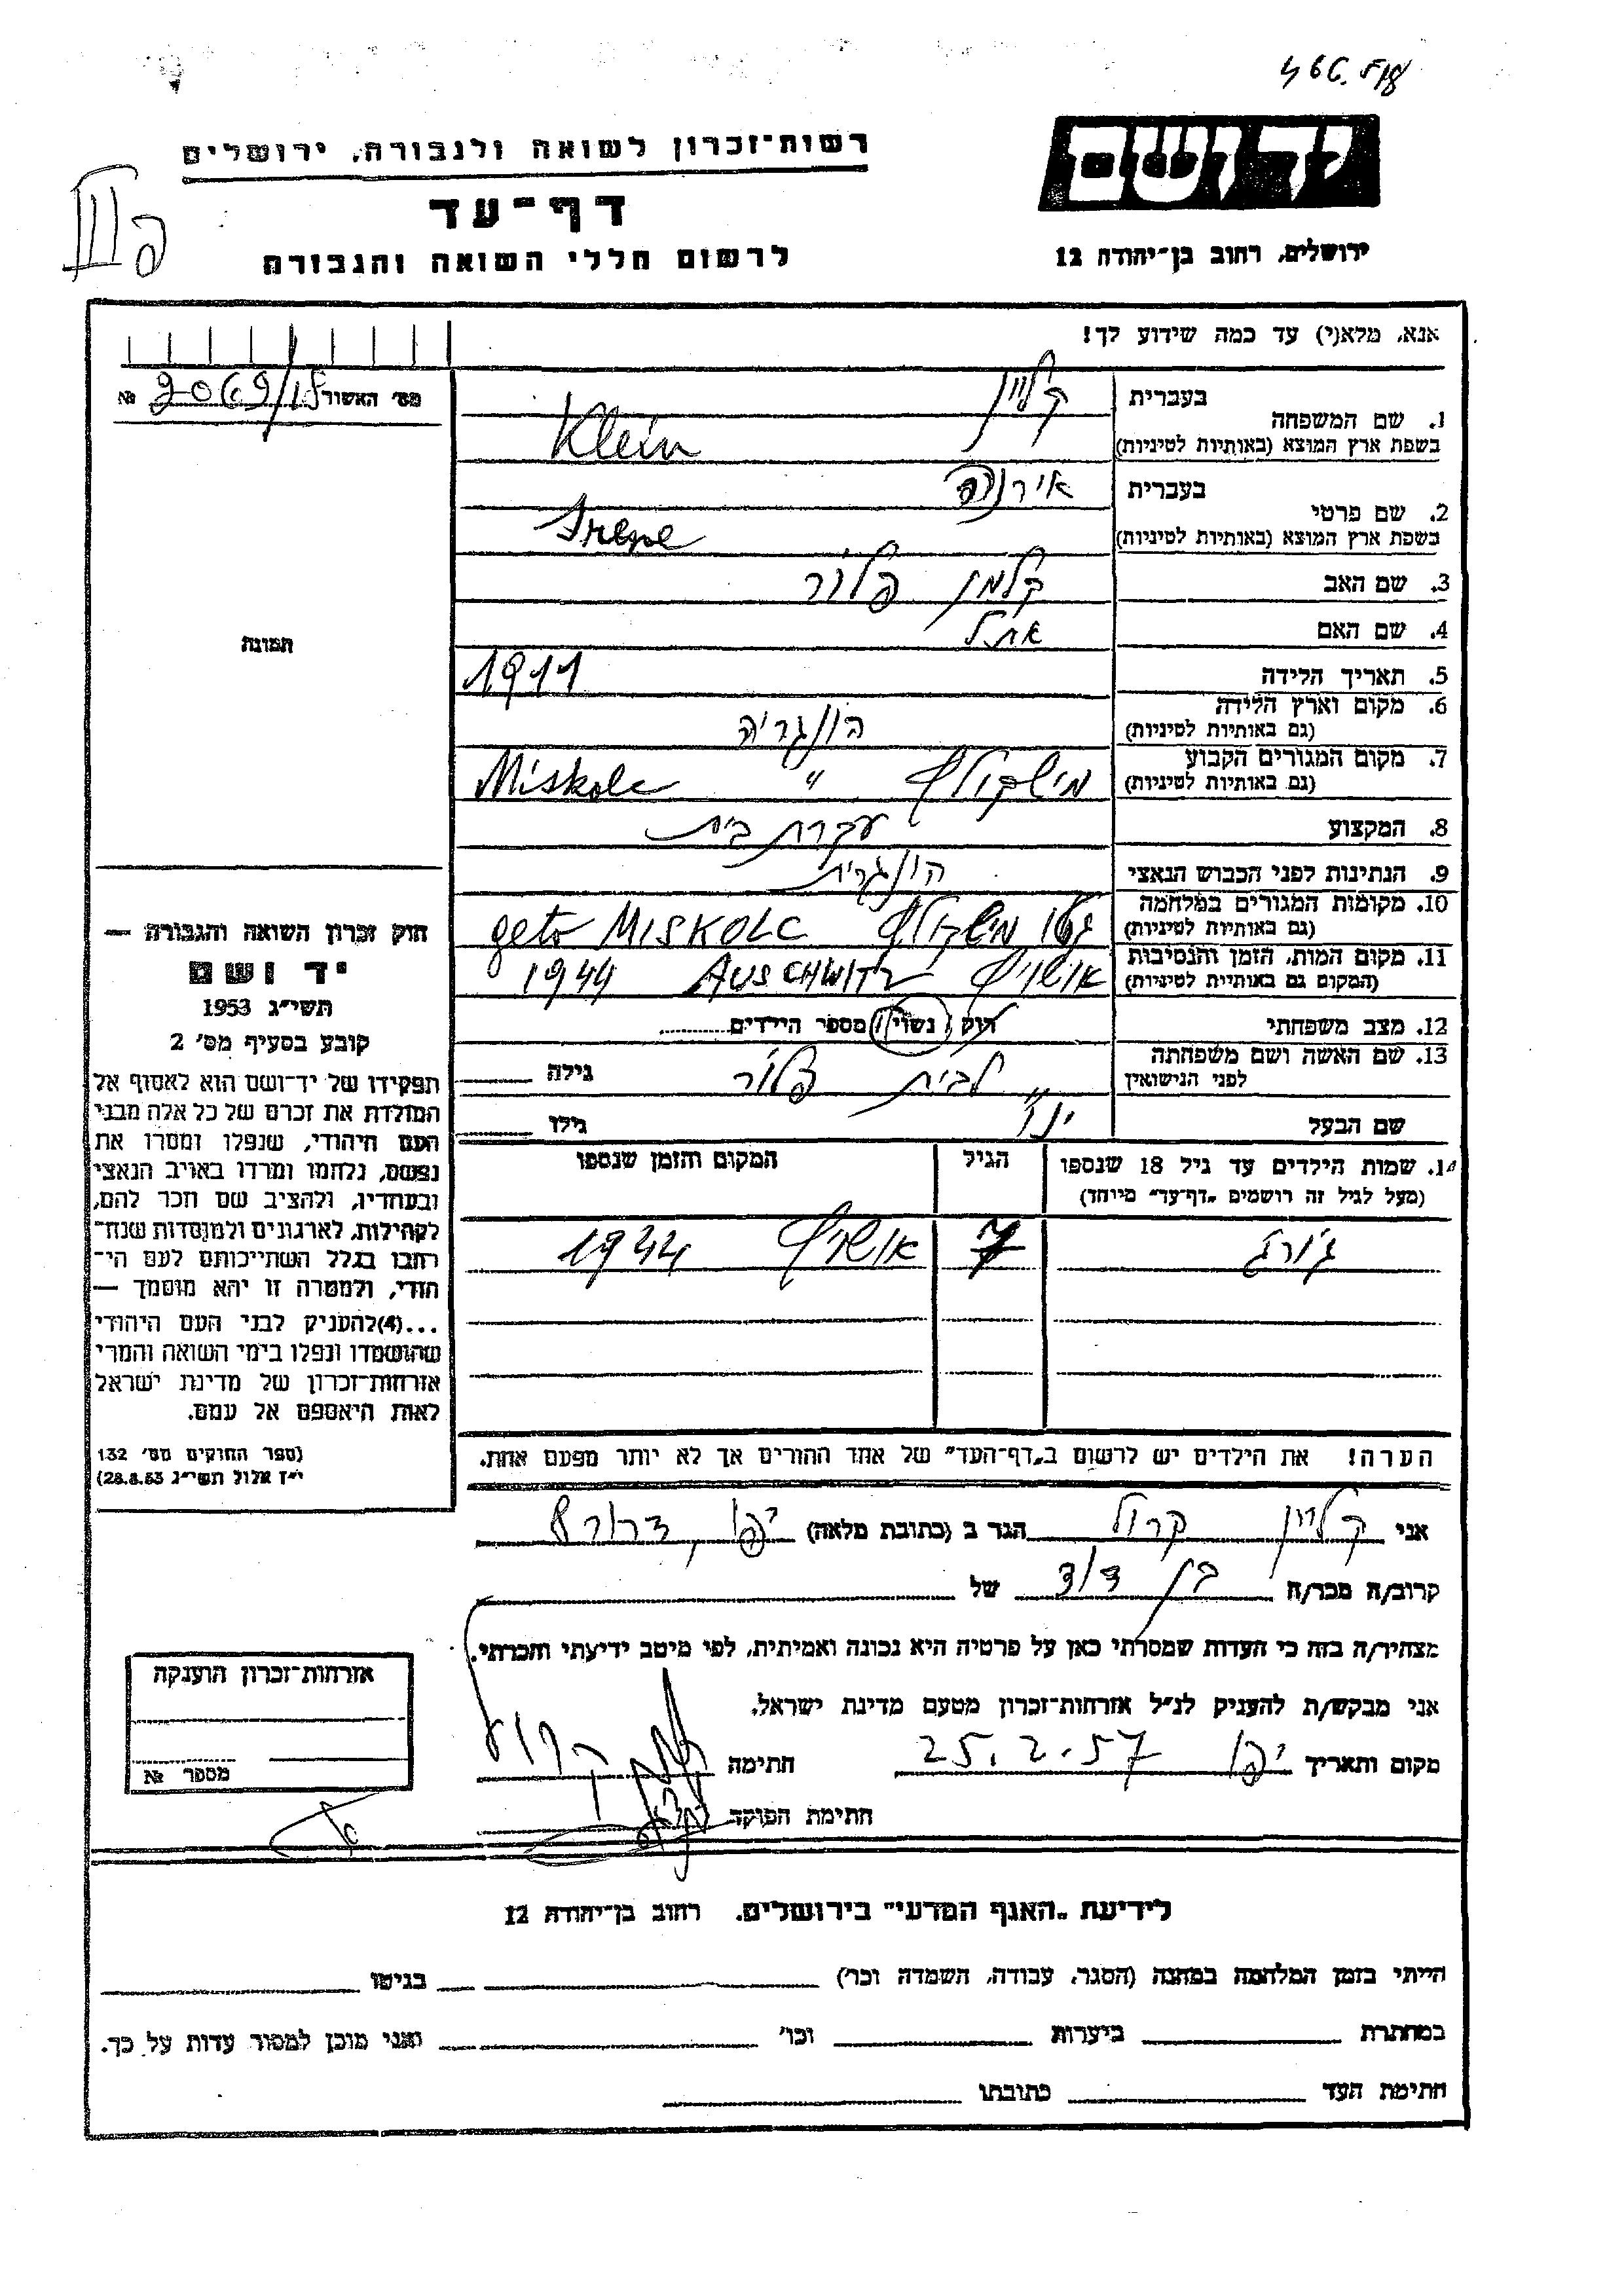 יד ושם
ירושלים, רחוב בן־יהודה 12
רשות־זכרון לשואה ולגבורה, ירושלים
דף־עד
לרשום חללי השואה והגבורה
III
אנא, מלא(י) עד כמה שידוע לך!
מס׳ האשור 2069/15 №
1. שם המשפחה
בעברית קליין
בשפת ארץ המוצא (באותיות לטיניות) Klein
2. שם פרטי
בעברית אירנה
בשפת ארץ המוצא (באותיות לטיניות) Irene
3. שם האב קלמן פלור
4. שם האם אתל
5. תאריך הלידה 1911
6. מקום וארץ הלידה
(גם באותיות לטיניות) הונגריה
7. מקום המגורים הקבוע
(גם באותיות לטיניות) מישקולץ " Miskolc
8. המקצוע עקרת בית
9. הנתינות לפני הכבוש הנאצי הונגרית
10. מקומות המגורים במלחמה
(גם באותיות לטיניות) גטו מישקולץ geto MISKOLC
11. מקום המות, הזמן והנסיבות
(המקום גם באותיות לטיניות) אושויץ AUSCHWITZ 1944
12. מצב משפחתי רוק/נשוי/ מספר הילדים
13. שם האשה ושם משפחתה
לפני הנישואין לבית פלור גילה
שם הבעל גילו
14. שמות הילדים עד גיל 18 שנספו
(מעל לגיל זה רושמים „דף־עד" מיוחד)
הגיל
המקום והזמן שנספו
ג׳ורג 7 אושויץ 1944
הערה! את הילדים יש לרשום ב„דף־העד" של אחד ההורים אך לא יותר מפעם אחת.
תמונה
חוק זכרון השואה והגבורה —
יד ושם
תשי״ג 1953
קובע בסעיף מס׳ 2
תפקידו של יד־ושם הוא לאסוף אל
המולדת את זכרם של כל אלה מבני
העם היהודי, שנפלו ומסרו את
נפשם, נלחמו ומרדו באויב הנאצי
ובעוזריו, ולהציב שם וזכר להם,
לקהילות, לארגונים ולמוסדות שנח־
רבו בגלל השתייכותם לעם הי־
הודי, ולמטרה זו יהא מוסמך —
...(4)להעניק לבני העם היהודי
שהושמדו ונפלו בימי השואה והמרי
אזרחות־זכרון של מדינת ישראל
לאות היאספם אל עמם.
(ספר החוקים מס׳ 132
י״ז אלול תשי״ג 28.8.53)
אני קליין קרול הגר ב (כתובת מלאה) יפו,
קרוב/ה מכר/ה בן דוד של
מצהיר/ה בזה כי העדות שמסרתי כאן על פרטיה היא נכונה ואמיתית, לפי מיטב ידיעתי והכרתי.
אני מבקש/ת להעניק לנ״ל אזרחות־זכרון מטעם מדינת ישראל.
מקום ותאריך יפו 25.2.57 חתימה
חתימת הפוקד
אזרחות־זכרון הוענקה
מספר №
לידיעת „האגף המדעי" בירושלים, רחוב בן־יהודה 12
הייתי בזמן המלחמה במחנה (הסגר, עבודה, השמדה וכו׳) בגיטו
במחתרת ביערות וכו׳ ואני מוכן למסור עדות על כך.
חתימת העד כתובתו